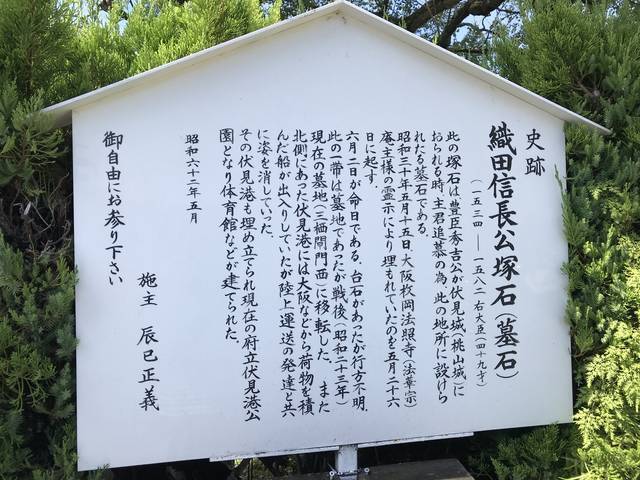 史跡
織田信長公塚石(墓石)
(一五三四 ― 一五八二・右大臣(四十九才)
此の塚石は豊臣秀吉公が伏見城(桃山城)に
おられる時、主君追慕の為、此の地所に設けら
れたる墓石である。
昭和三十年五月十五日、大阪枚岡法照寺(法華宗)
庵主様の霊示により埋もれていたのを五月二十六
日に起す。
六月二日が命日である。台石があったが行方不明.
此の一帯は墓地であったが戦後(昭和二十三年)
現在の墓地(三栖閘門西)に移転した。また
北側にあった伏見港には大阪などから荷物を積
んだ船が出入りしていたが陸上運送の発達と共
に姿を消していった。
その伏見港も埋め立てられ現在の府立伏見港公
園となり体育館などが建てられた。
昭和六十二年五月
御自由にお参り下さい
施主 辰巳正義